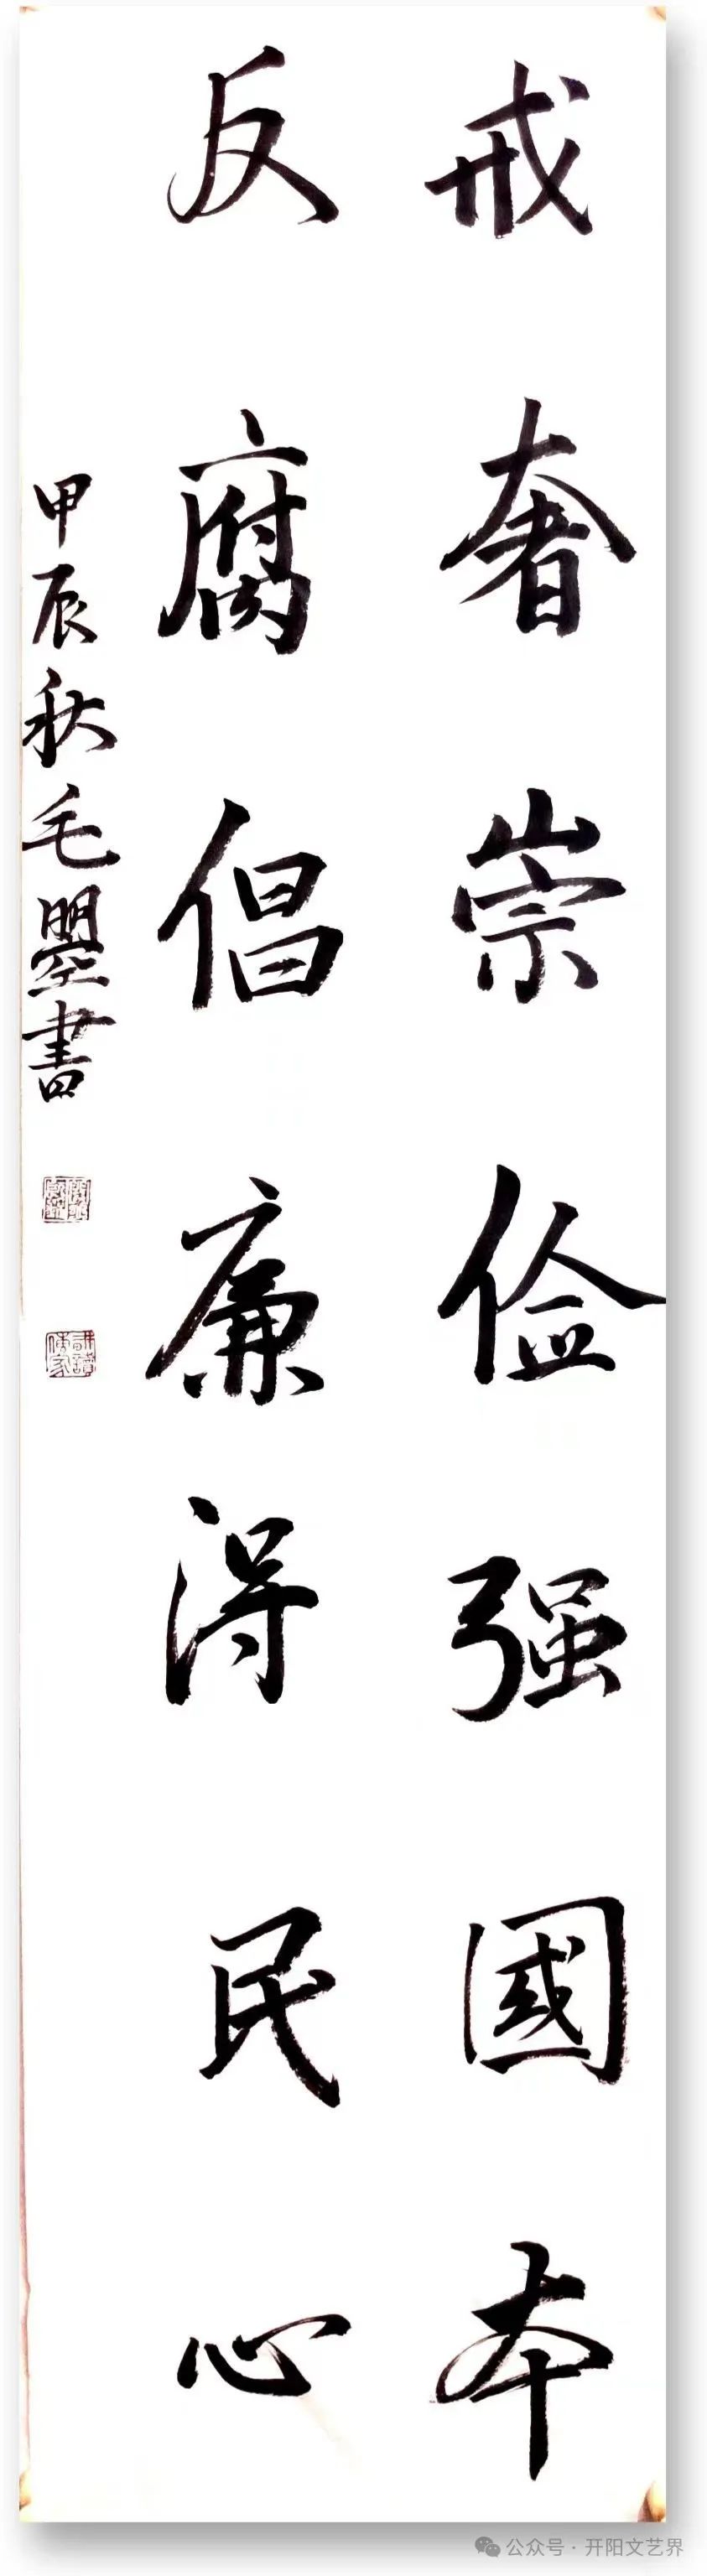 戒奢崇俭强國本
反腐倡廉得民心
甲辰秋毛曌書
公众号·开阳文艺界